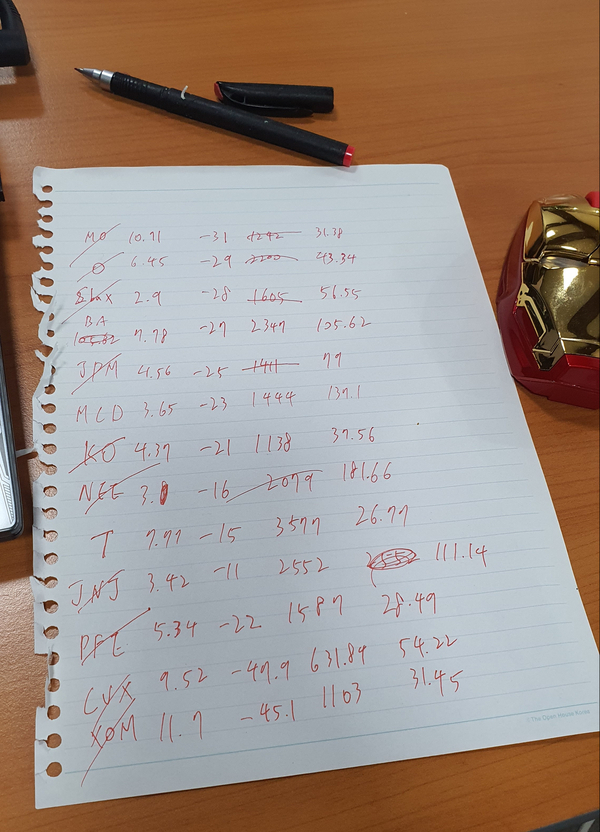 MO 10.71 -31 1242 31.38
O 6.45 -29 43.34
SBUX 2.9 -28 1605 56.55
BA
105.62 7.78 -27 2347 105.62
JPM 4.56 -25 1411 79
MCD 3.65 -23 1444 137.1
KO 4.37 -21 1138 37.56
NEE 3. -16 2079 181.66
T 7.77 -15 3577 26.77
JNJ 3.42 -11 2552 111.14
PFE 5.34 -22 1587 28.49
CVX 9.52 -47.9 631.84 54.22
XOM 11.7 -45.1 1103 31.45
The Open House Korea